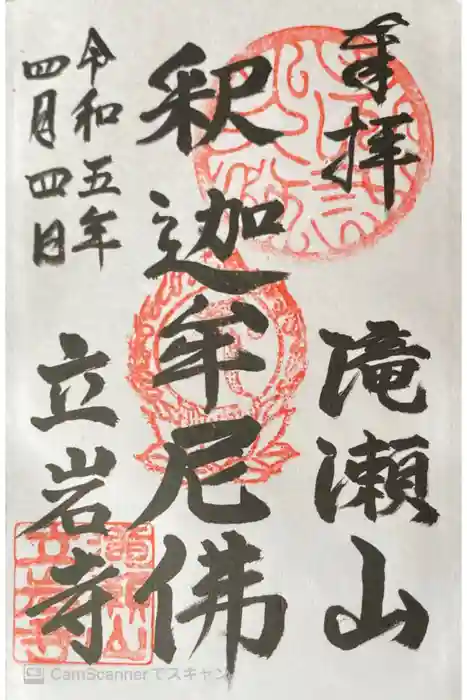 奉拝
滝瀬山
釈迦牟尼佛
令和五年
四月四日
立岩寺
CamScannerでスキャン